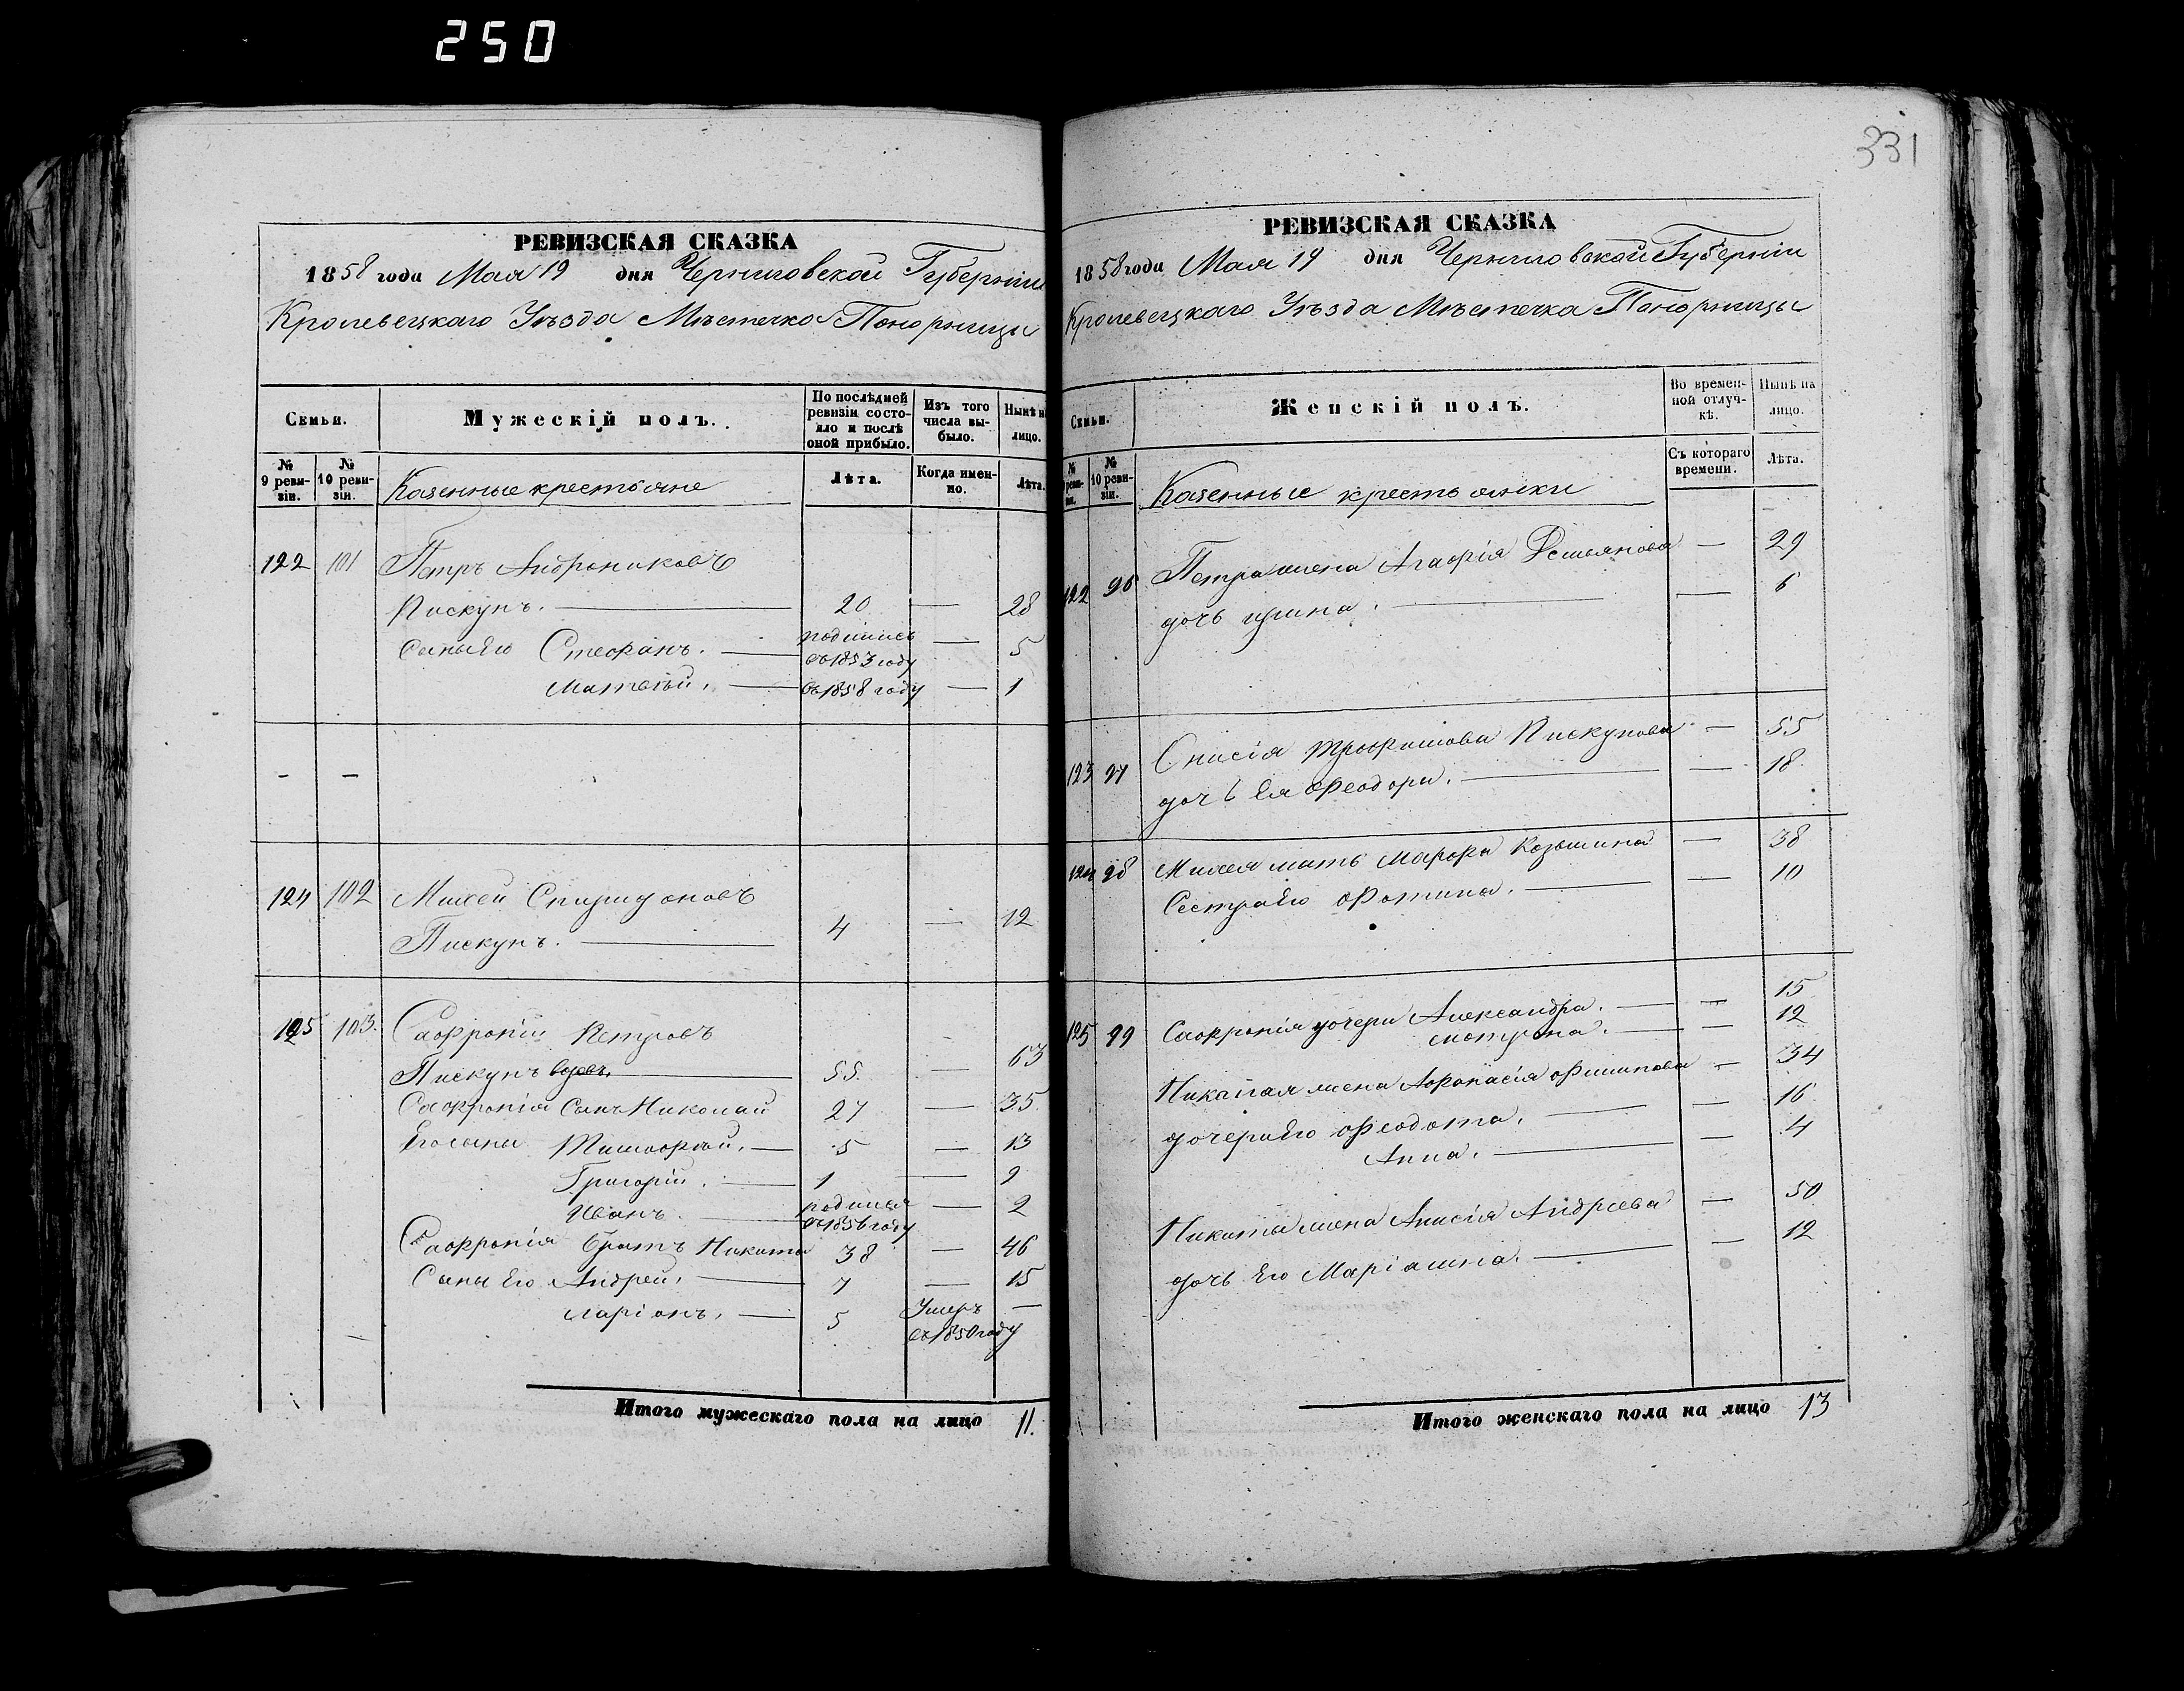 250
331
РЕВИЗСКАЯ СКАЗКА
1858 года Мая 19 дня Черниговской Губерніи
Кролевецкаго Уѣзда Мѣстечка Понорницы
Семьи.
Мужескій полъ.
По послѣдней ревизіи состояло и послѣ оной прибыло.
Изъ того числа выбыло.
Нынѣ на лицо.
№ 9 ревизіи.
№ 10 ревизіи.
Казенные крестьяне
Лѣта.
Когда именно.
Лѣта.
122 101 Петръ Андрониковъ
Пискунъ. 20 — 28
Сыны Его Стефанъ. родился въ 1853 году — 5
Матвѣй. въ 1858 году — 1
— —
124 102 Михей Спиридоновъ
Пискунъ. 4 — 12
125 103. Софроній Петровъ
Пискунъ вдовъ. 55. — 63
Софронія Сынъ Николай 27 — 35.
Его сыны Тимофей. 5 — 13
Григорій. 1 — 9
Иванъ. родился въ 1856 году — 2
Софронія братъ Никита 38 — 46
Сыны Его Андрей. 7 — 15
Ларіонъ. 5 Умеръ въ 1850 году —
Итого мужескаго пола на лицо 11.
РЕВИЗСКАЯ СКАЗКА
1858 года Мая 19 дня Черниговской Губерніи
Кролевецкаго Уѣзда Мѣстечка Понорницы
Семьи.
Женскій полъ.
Во временной отлучкѣ.
Нынѣ на лицо.
№ 9 ревизіи.
№ 10 ревизіи.
Казенные крестьянки
Съ котораго времени.
Лѣта.
122 96 Петра жена Агафія Демьянова — 29
дочь Ирина. — 6
123 97 Онисія Трофимова Пискунова — 55
дочь Ея Феодора. — 18
124 98 Михея мать Марфа Козьмина — 38
Сестра Его Фотина. — 10
125 99 Софронія дочери Александра. — 15
Мотрона. — 12
Николая жена Афанасія Филипова — 34
дочери Его Феодота. — 16
Анна. — 4
Никиты жена Анисія Андреева — 50
дочь Его Маріамна. — 12
Итого женскаго пола на лицо 13